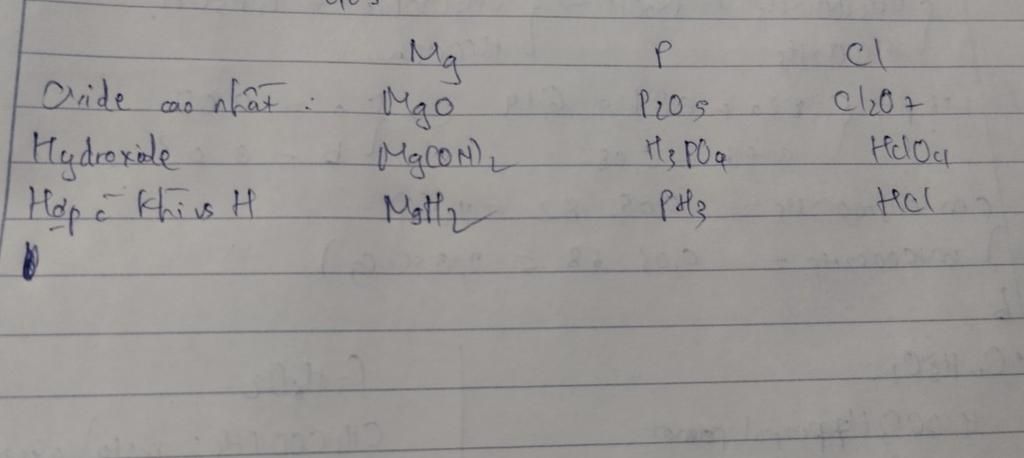 Mg P Cl
Oxide cao nhất : MgO P2O5 Cl2O7
Hydroxide Mg(OH)2 H3PO4 HClO4
Hợp c khí vs H MgH2 PH3 HCl